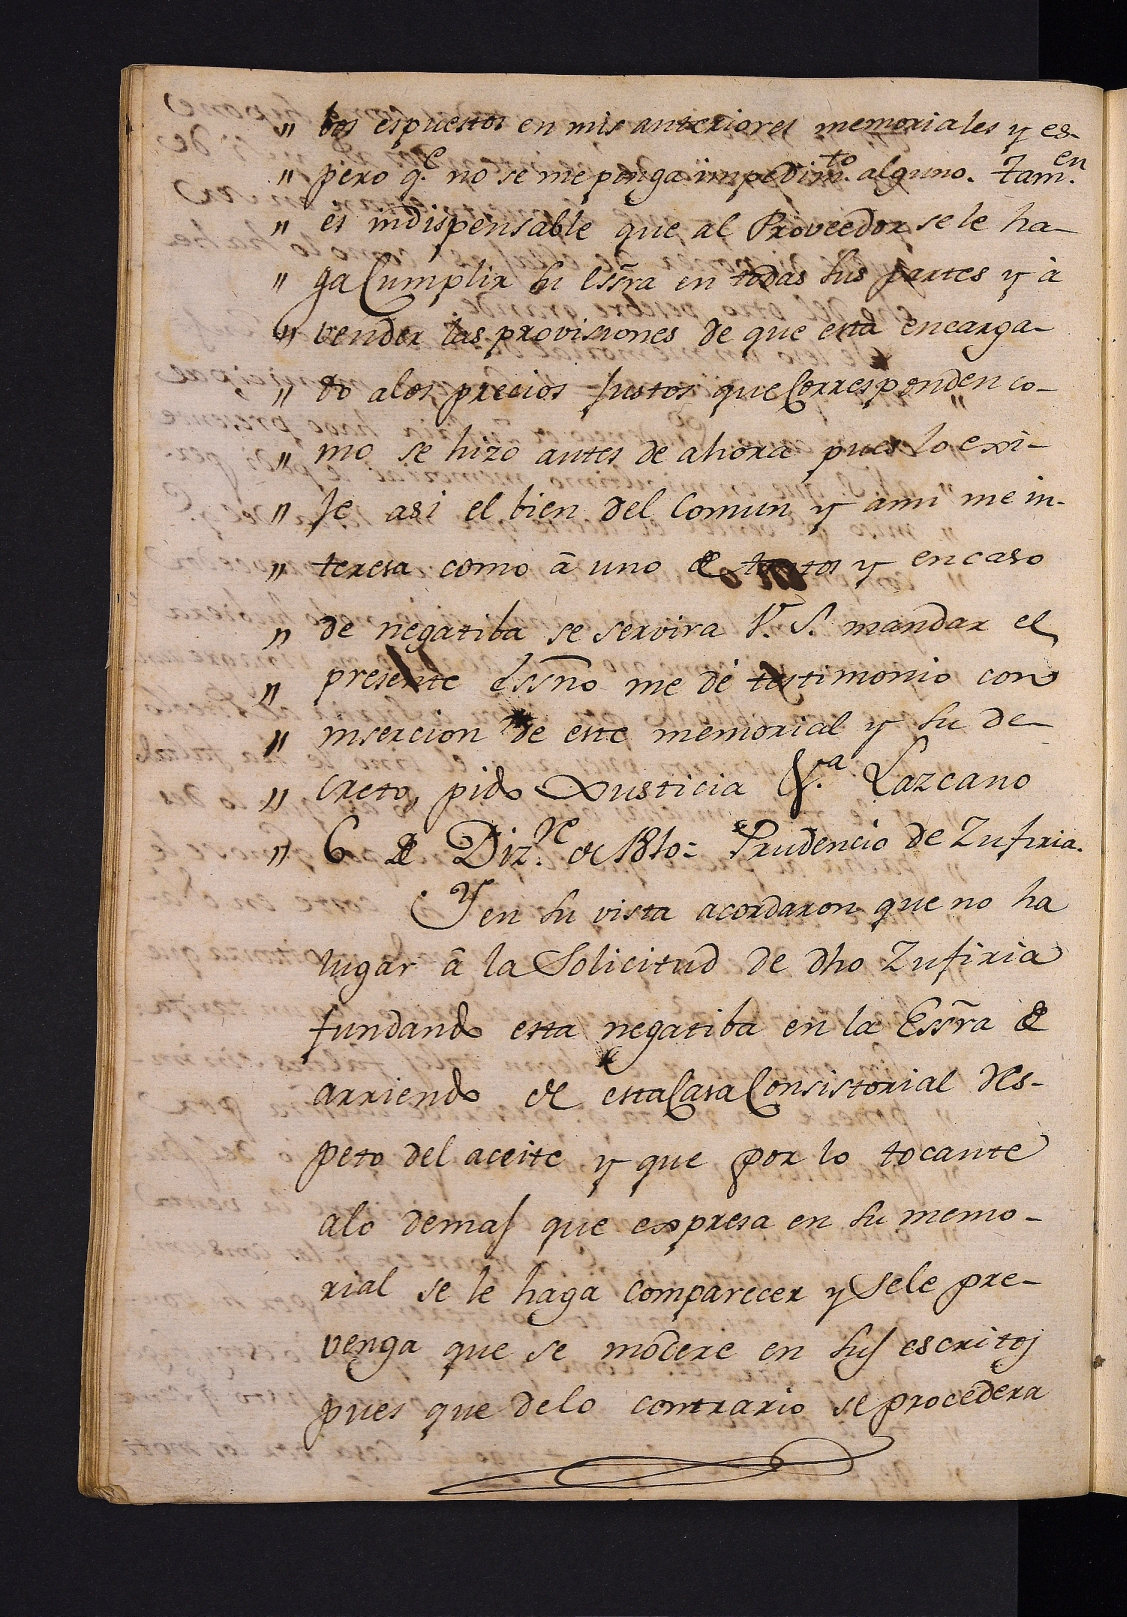 " bos espuestos en mis anteriores memoriales y es-
" pero q.e no se me ponga impedim.to alguno. Tam.en
" es indispensable que al Proveedor se le ha-
" ga Cumplir su Essra en todas sus partes y à
" vender las provisiones de que esta encarga-
" do alos precios Justos que Corresponden co-
" mo se hizo antes de ahora pues lo exi-
" Je asi el bien del Comun y ami me in-
" teresa como à uno de y en caso
" de negatiba se servira V. S. mandar el
" presente Essno me dé testimonio con
" insercion de este memorial y su de-
" creto, pido Justicia &.a Lazcano
" 6 de Diz.re de 1810= Prudencio de Zufiria.
Y en su vista acordaron que no ha
lugar â la Solicitud de dho Zufiria
fundando esta negatiba en la Essra de
arriendo de esta Casa Consistorial res-
peto del aceite y que por lo tocante
alo demas que expresa en su memo-
rial se le haga comparecer y sele pre-
venga que se modere en sus escritos
pues que delo contrario se procedera